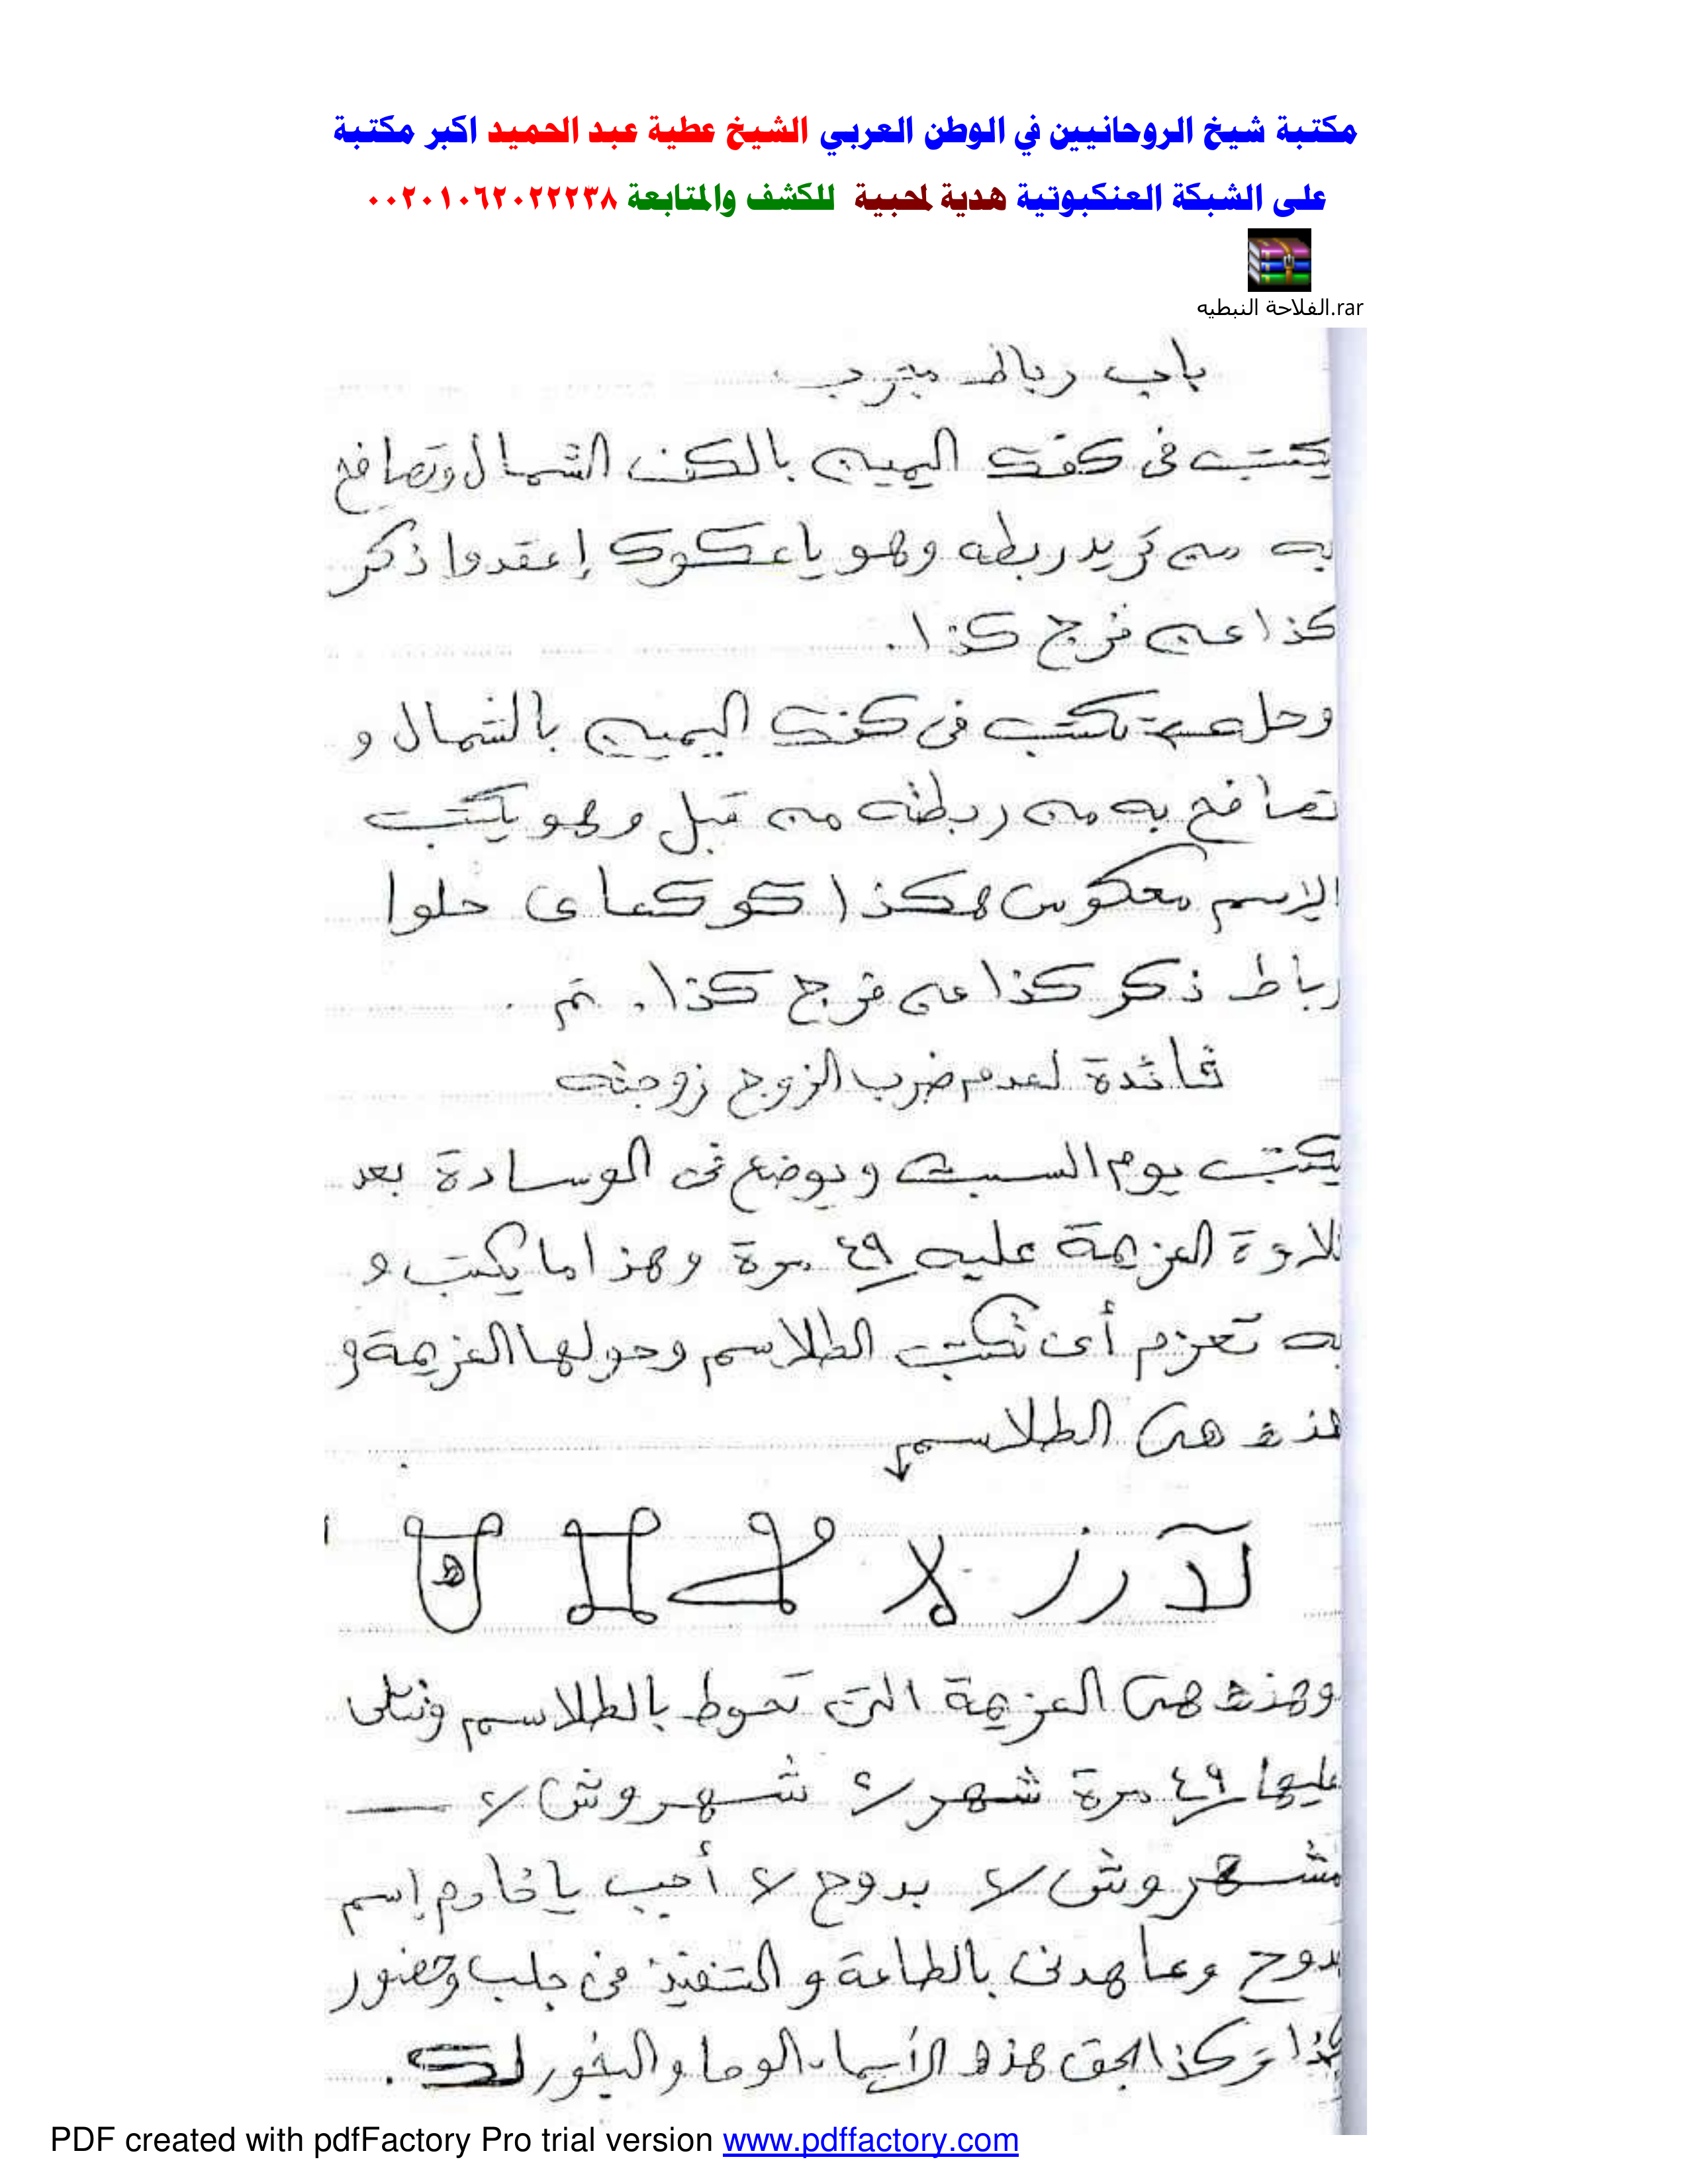 مكتبة شيخ الروحانيين في الوطن العربي الشيخ عطية عبد الحميد اكبر مكتبة
على الشبكة العنكبوتية هدية لمحبية للكشف والمتابعة ٠٠٢٠١٠٦٢٠٢٢٢٣٨
الفلاحة النبطيه.rar
باب رباط مجرب
يكتب فى كفك اليمين بالكف الشمال وتصافح
به من تريد ربطه وهو يا عكوك إعقدوا ذكر
كذا عن فرج كذا.
وحله تكتب فى كفك اليمين بالشمال و
تصافح به من ربطته من قبل وهو يكتب
الإسم معكوس هكذا كوكعاى حلوا
رباط ذكر كذا عن فرج كذا. تم
فائدة لعدم ضرب الزوج زوجته
يكتب يوم السبت ويوضع فى الوسادة بعد
تلاوة العزيمة عليه ٤٩ مرة وهذا ما يكتب و
به تعزم أى تكتب الطلاسم وحولها العزيمة و
هذه هى الطلاسم
وهذه هى العزيمة التى تحوط بالطلاسم وتتلى
عليها ٤٩ مرة شهر ٢ شهروش ٢
شهروش ٢ بدوح ٢ أجب يا خادم إسم
بدوح وعاهدنى بالطاعة و التنفيذ فى جلب وحضور
كذا وكذا بحق هذه الأسماء الوحا والبخور لك.
PDF created with pdfFactory Pro trial version www.pdffactory.com